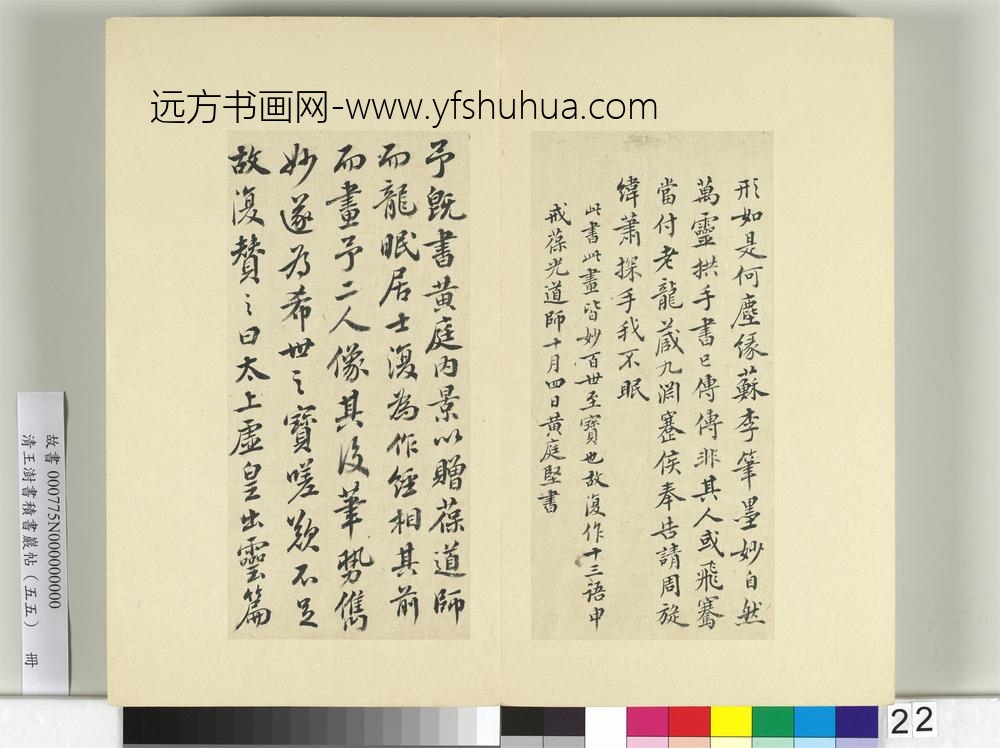 远方书画网-www.yfshuhua.com
形如是何塵緣蘇李筆墨妙自然
萬靈拱手書已傳傳非其人或飛騫
當付老龍蔵九淵蹇侯奉告請周旋
緯蕭探手我不眠
此書此畫皆妙百世至寶也故復作十三語申
戒葆光道師十月四日黄庭堅書
予既書黄庭内景以贈葆道師
而龍眠居士復為作經相其前
而畫予二人像其後筆勢雋
妙遂為希世之寶嗟歎不足
故復賛之曰太上虚皇出靈篇
故書000775N000000000
清王澍書積書巖帖（五五） 冊
22